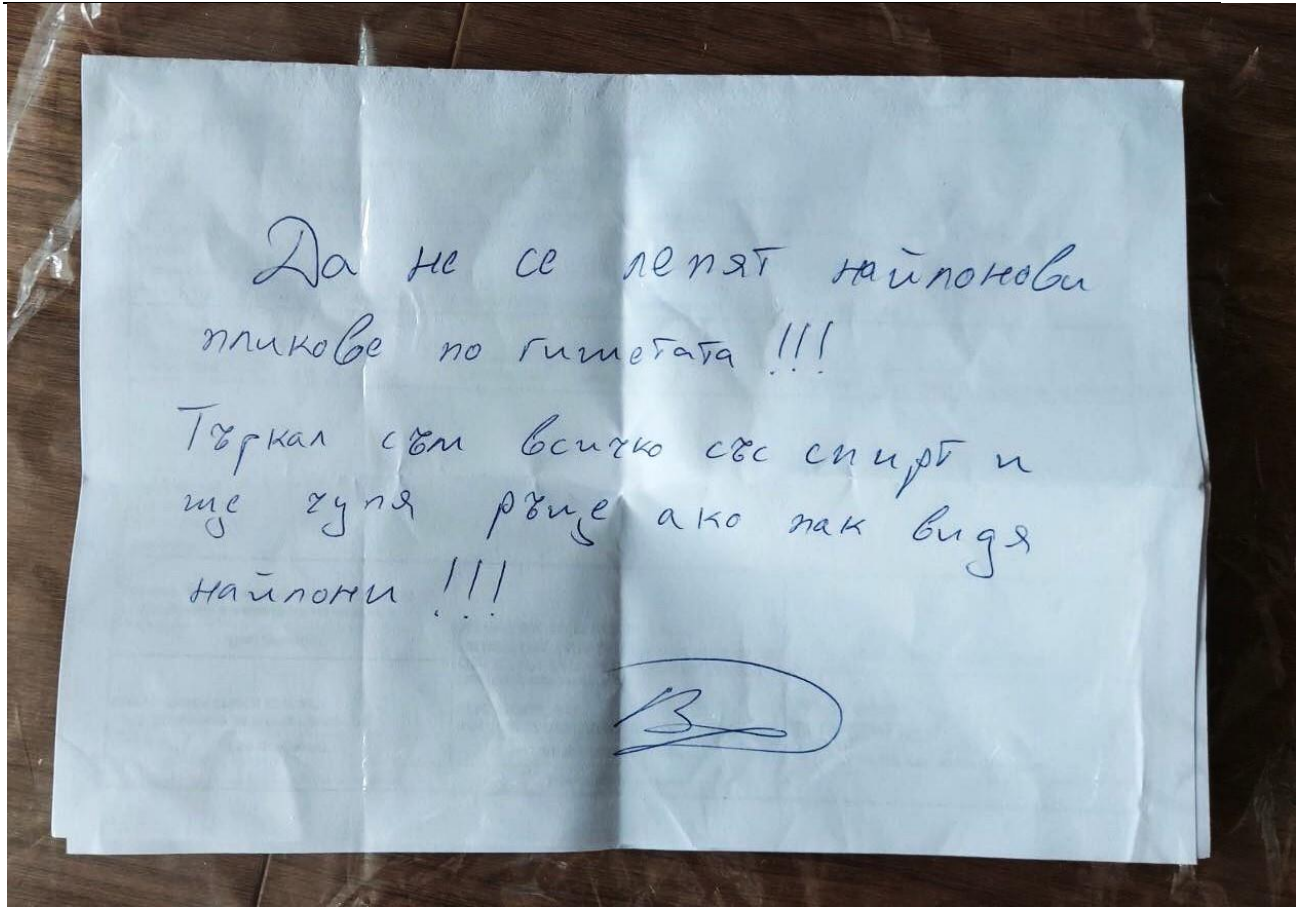 Да не се лепят найлонови
пликове по гишетата !!!
Търкал съм всичко със спирт и
ще чупя ръце ако пак видя
найлони !!!